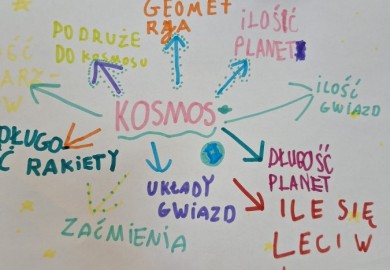 GEOMET
RJA
PODRUŻE
DO KOSMOSU
ILOŚĆ
PLANET
OŚĆ
ARZ-
W
ILOŚĆ
GWIAZD
KOSMOS
DŁUGO-
Ć RAKIETY
DŁUGOŚĆ
PLANET
UKŁADY
GWIAZD
ZAĆMIENIA
ILE SIĘ
LECI W